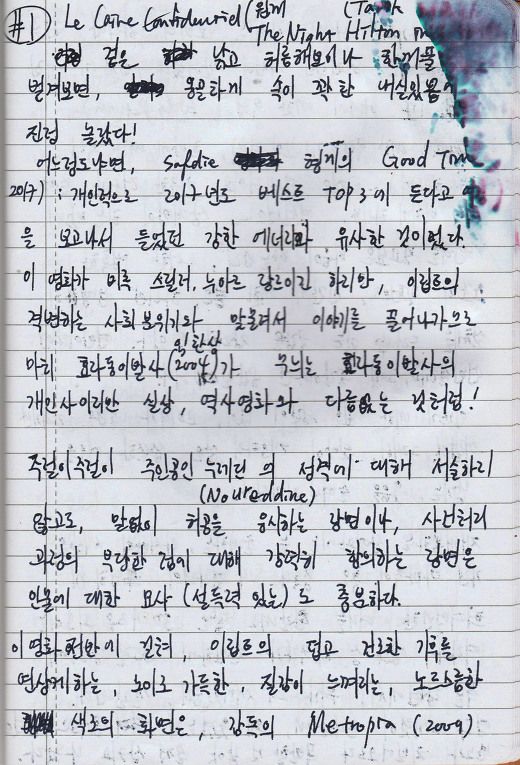 #1 Le Caire Confidentiel (원제
The Night Hilton
겉은 낡고 허름해보이나 한꺼풀
벗겨보면, 옹골하게 속이 꽉 찬 내실있음에
진정 놀랐다!
어느정도냐면, Safdie 형제의 Good Time
2017) : 개인적으로 2017년도 베스트 TOP 3에 든다고
을 보고나서 들었던 강한 에너지와 유사한 것이었다.
이 영화가 비록 스릴러, 누아르 장르이긴 하지만, 이집트의
격변하는 사회분위기와 맞물려서 이야기를 끌어나가므로
마치 효자동이발사(2004, 임찬상)가 무늬는 효자동이발사의
개인사이지만 실상, 역사영화와 다름없는 것처럼!
주절이주절이 주인공인 누레딘의 성격에 대해 서술하지
(Noureddine)
않고도, 말없이 허공을 응시하는 장면이나, 사건처리
과정의 부당한 점에 대해 강력히 항의하는 장면은
인물에 대한 묘사(설득력 있는)로 충분하다.
이 영화 전반에 걸쳐, 이집트의 덥고 건조한 기후를
연상케하는, 노이즈 가득한, 질감이 느껴지는, 노르스름한
색조의 화면은, 감독의 Metropia (2009)